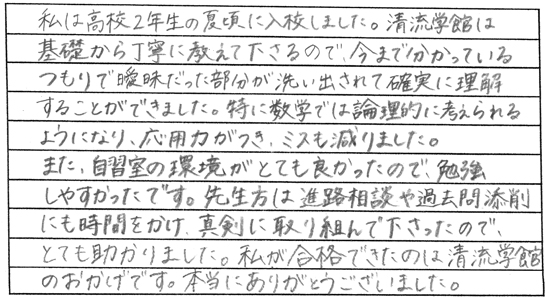 私は高校2年生の夏頃に入校しました。清流学館は
基礎から丁寧に教えて下さるので、今まで分かっている
つもりで曖昧だった部分が洗い出されて確実に理解
することができました。特に数学では論理的に考えられる
ようになり、応用力がつき、ミスも減りました。
また、自習室の環境がとても良かったので、勉強
しやすかったです。先生方は進路相談や過去問添削
にも時間をかけ、真剣に取り組んで下さったので、
とても助かりました。私が合格できたのは清流学館
のおかげです。本当にありがとうございました。